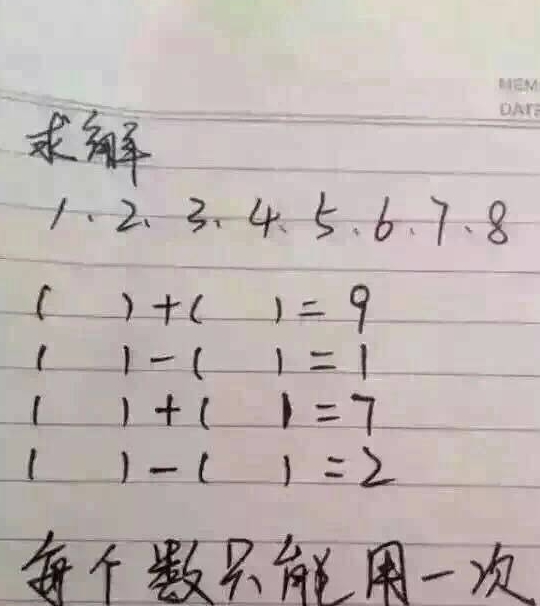 MEM
DATE
求解
1、2、3、4、5、6、7、8
( )+( )=9
( )-( )=1
( )+( )=7
( )-( )=2
每个数只能用一次